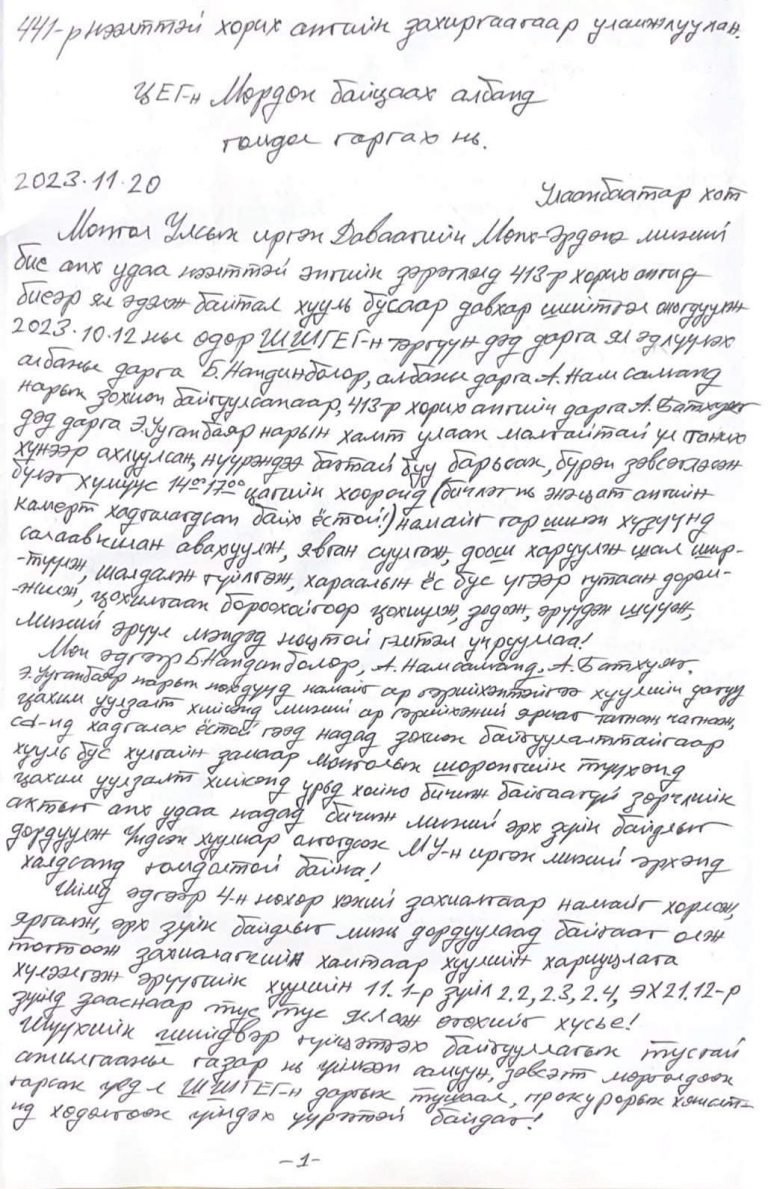 441-р нээлттэй хорих ангийн захиргаагаар уламжлуулан.
ЦЕГ-н Мөрдөн байцаах албанд
гомдол гаргах нь.
2023.11.20
Улаанбаатар хот
Монгол Улсын иргэн Даваагийн Мөнх-Эрдэнэ миний
бие анх удаа нээлттэй энгийн дэглэмд 413-р хорих ангид
биеэр ял эдэлж байтал хууль бусаар давхар шийтгэл оногдуулж
2023.10.12 ны өдөр ШШГЕГ-н тэргүүн дэд дарга ял эдлүүлэх
албаны дарга Б.Нандинболор, албаны дарга А.Намсалманд
нарын зохион байгуулсанаар, 413-р хорих ангийн дарга А.Батхуяг
дэд дарга Э.Ууганбаяр нарын хамт улаан малгайтай
хүнээр ахлуулсан, нүүрэндээ багтай буу барьсан, бүрэн зэвсэглэсэн
бүлэг хүмүүс 14⁰⁰ 17⁰⁰ цагийн хооронд (бичлэг нь энэ цагт ангийн
камерт хадгалагдсан байх ёстой!) намайг гар хүзүүнд
салаавчлан авахуулж, явган суулгаж, доош харуулж шал шир-
-түүлж, шалдалж гүйлгэж, хараалын ёс бус үгээр гутаан дором-
-жилж, цохилтаан бороохойгоор цохиулж, зодож, эрүүдэн шүүж,
миний эрүүл мэндэд ноцтой гэмтэл учрууллаа!
Мөн эдгээр Б.Нандинболор, А.Намсалманд, А.Батхуяг,
Э.Ууганбаяр нарын нөхдүүд намайг ар гэрийхэнтэйгээ хуулийн дагуу
цахим уулзалт хийхэд миний ар гэрийхэний яриаг тагнаж чагнаж,
cd-нд хадгалах ёстой гээд надад зохион байгуулалттайгаар
хууль бус хулгайн замаар монголын шоронгийн түүхэнд
цахим уулзалт хийхэд урьд хойно бичиж байгаагүй зөрчлийн
актыг анх удаа надад бичиж миний эрх зүйн байдлыг
дордуулж Үндсэн хуулиар олгогдсон МУ-н иргэн миний эрхэнд
халдсанд гомдолтой байна!
Иймд эдгээр 4-н нөхөр хэний захиалгаар намайг хорлож,
яргалж, эрх зүйн байдлыг минь дордуулаад байгааг олж
тогтоож захиалагчийн хамтаар хуулийн хариуцлага
хүлээлгэж эрүүгийн хуулийн 11.1-р зүйл 2.2, 2.3, 2.4, ЭХ 21.12-р
зүйлд зааснаар тус тус яллаж өгөхийг хүсье!
Шүүхийн шийдвэр гүйцэтгэх байгууллагын тусгай
ажиллагааны газар нь үймээн самуун, зэвсэгт мөргөлдөөн
гарсан үед л ШШГЕГ-н даргын тушаал, прокурорын хяналт-
нд хөдөлгөөн үүрэгтэй байдаг!
-1-